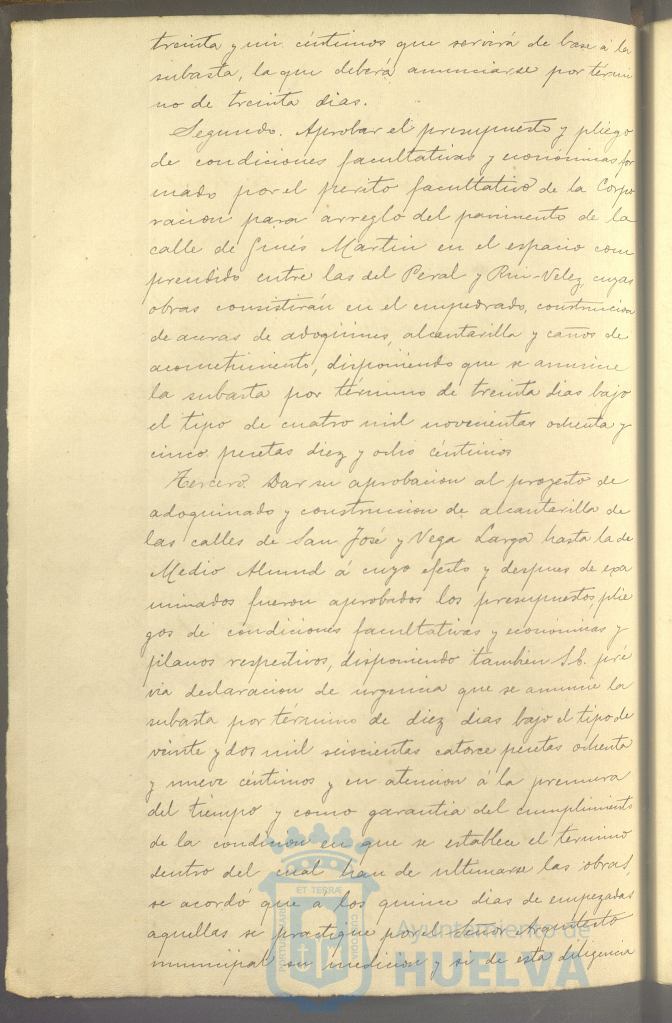 treinta y un céntimos que servirá de base á la
subasta, la que deberá anunciarse por térmi
no de treinta dias.
Segundo. Aprobar el presupuesto y pliego
de condiciones facultativas y económicas for
mado por el perito facultativo de la Corpo
racion para arreglo del pavimento de la
calle de Ginés Martin en el espacio com
prendido entre las del Peral y Rui-Velez, cuyas
obras consistirán en el empedrado, construccion
de aceras de adoquines, alcantarilla y caños de
acometimiento, disponiendo que se anuncie
la subasta por término de treinta dias bajo
el tipo de cuatro mil novecientas ochenta y
cinco pesetas diez y ocho céntimos
Tercero. Dar su aprobacion al proyecto de
adoquinado y construccion de alcantarilla de
las calles de San José y Vega Larga hasta la de
Medio Almud á cuyo efecto y despues de exa
minados fueron aprobados los presupuestos, plie
gos de condiciones facultativas y económicas y
planos respectivos, disponiendo tambien S.E. pré
via declaracion de urgencia que se anuncie la
subasta por término de diez dias bajo el tipo de
veinte y dos mil seiscientas catorce pesetas ochenta
y nueve céntimos y en atencion á la premura
del tiempo y como garantia del cumplimiento
de la condicion en que se establece el término
dentro del cual han de ultimarse las obras,
se acordó que a los quince dias de empezadas
aquellas se practique por el Señor Arquitecto
municipal su medicion y si de esta diligencia
ET TERRÆ
PORTUS MARIS
CUSTODIA
Ayuntamiento de
HUELVA